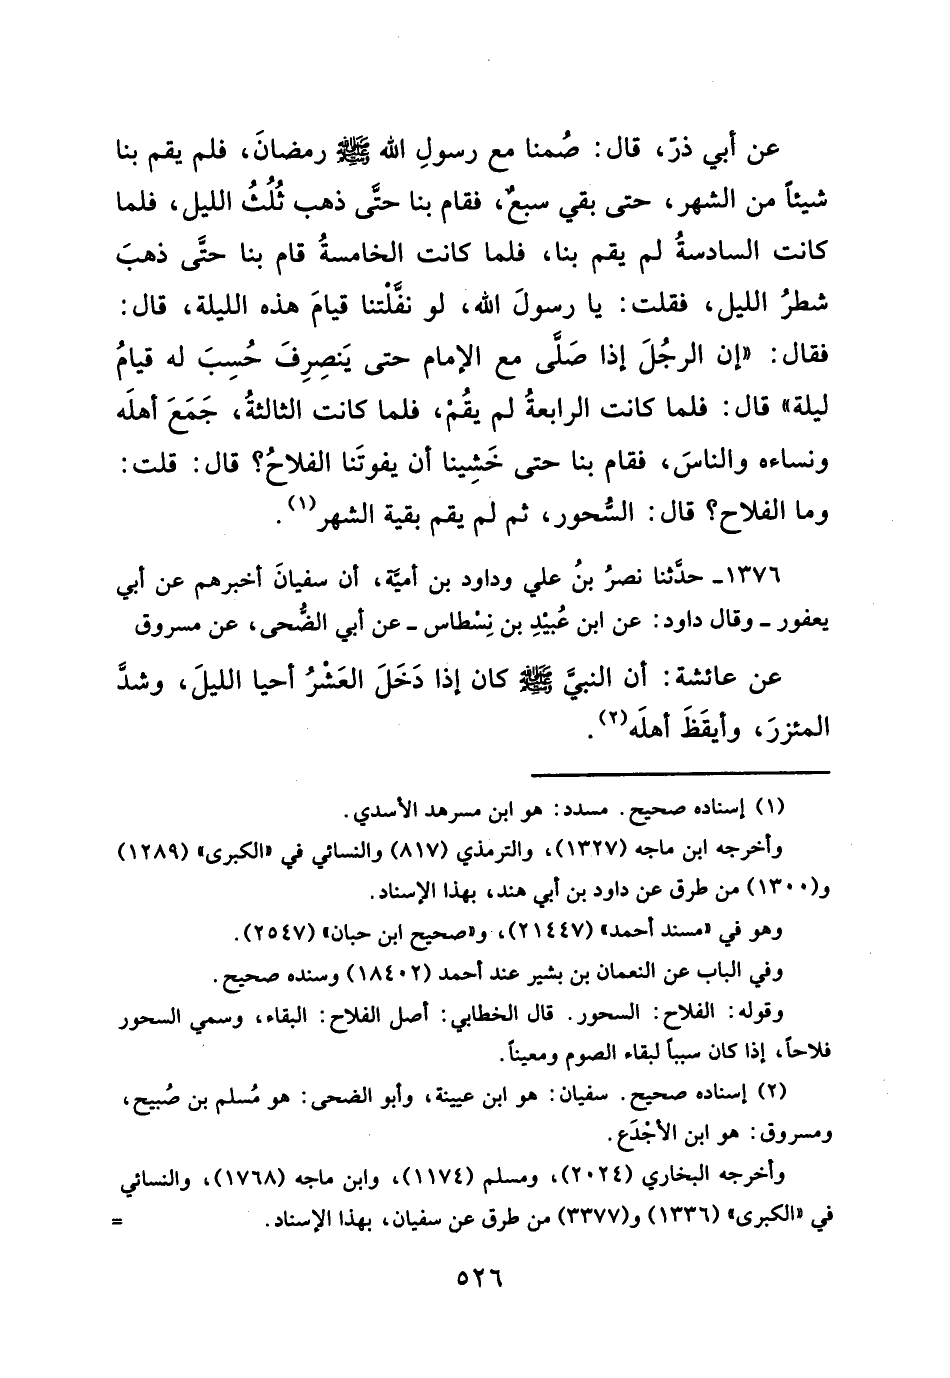 عن أبي ذرّ، قال: صُمنا مع رسولِ الله ﷺ رمضانَ، فلم يقم بنا
شيئاً من الشهر، حتى بقي سبعٌ، فقام بنا حتَّى ذهب ثُلُثُ الليل، فلما
كانت السادسةُ لم يقم بنا، فلما كانت الخامسةُ قام بنا حتَّى ذهبَ
شطرُ الليل، فقلت: يا رسولَ الله، لو نفَّلْتنا قيامَ هذه الليلة، قال:
فقال: «إن الرجُلَ إذا صَلَّى مع الإمام حتى يَنصِرِفَ حُسِبَ له قيامُ
ليلة» قال: فلما كانت الرابعةُ لم يقُمْ، فلما كانت الثالثةُ، جَمَعَ أهلَه
ونساءه والناسَ، فقام بنا حتى خَشِينا أن يفوتَنا الفلاحُ؟ قال: قلت:
وما الفلاح؟ قال: السُّحور، ثم لم يقم بقية الشهر(١).
١٣٧٦ـ حدَّثنا نصرُ بنُ علي وداود بن أميَّة، أن سفيانَ أخبرهم عن أبي
يعفور ـ وقال داود: عن ابن عُبيْدِ بن نِسْطاس ـ عن أبي الضُّحى، عن مسروق
عن عائشة: أن النبيَّ ﷺ كان إذا دَخَلَ العَشْرُ أحيا الليلَ، وشدَّ
المئزرَ، وأيقَظَ أهلَه(٢).
(١) إسناده صحيح. مسدد: هو ابن مسرهد الأسدي.
وأخرجه ابن ماجه (١٣٢٧)، والترمذي (٨١٧) والنسائي في «الكبرى» (١٢٨٩)
و(١٣٠٠) من طرق عن داود بن أبي هند، بهذا الإسناد.
وهو في «مسند أحمد» (٢١٤٤٧)، و«صحيح ابن حبان» (٢٥٤٧).
وفي الباب عن النعمان بن بشير عند أحمد (١٨٤٠٢) وسنده صحيح.
وقوله: الفلاح: السحور. قال الخطابي: أصل الفلاح: البقاء، وسمي السحور
فلاحاً، إذا كان سبباً لبقاء الصوم ومعيناً.
(٢) إسناده صحيح. سفيان: هو ابن عيينة، وأبو الضحى: هو مُسلم بن صُبيح،
ومسروق: هو ابن الأجْدَع.
وأخرجه البخاري (٢٠٢٤)، ومسلم (١١٧٤)، وابن ماجه (١٧٦٨)، والنسائي
في «الكبرى» (١٣٣٦) و(٣٣٧٧) من طرق عن سفيان، بهذا الإسناد. =
٥٢٦